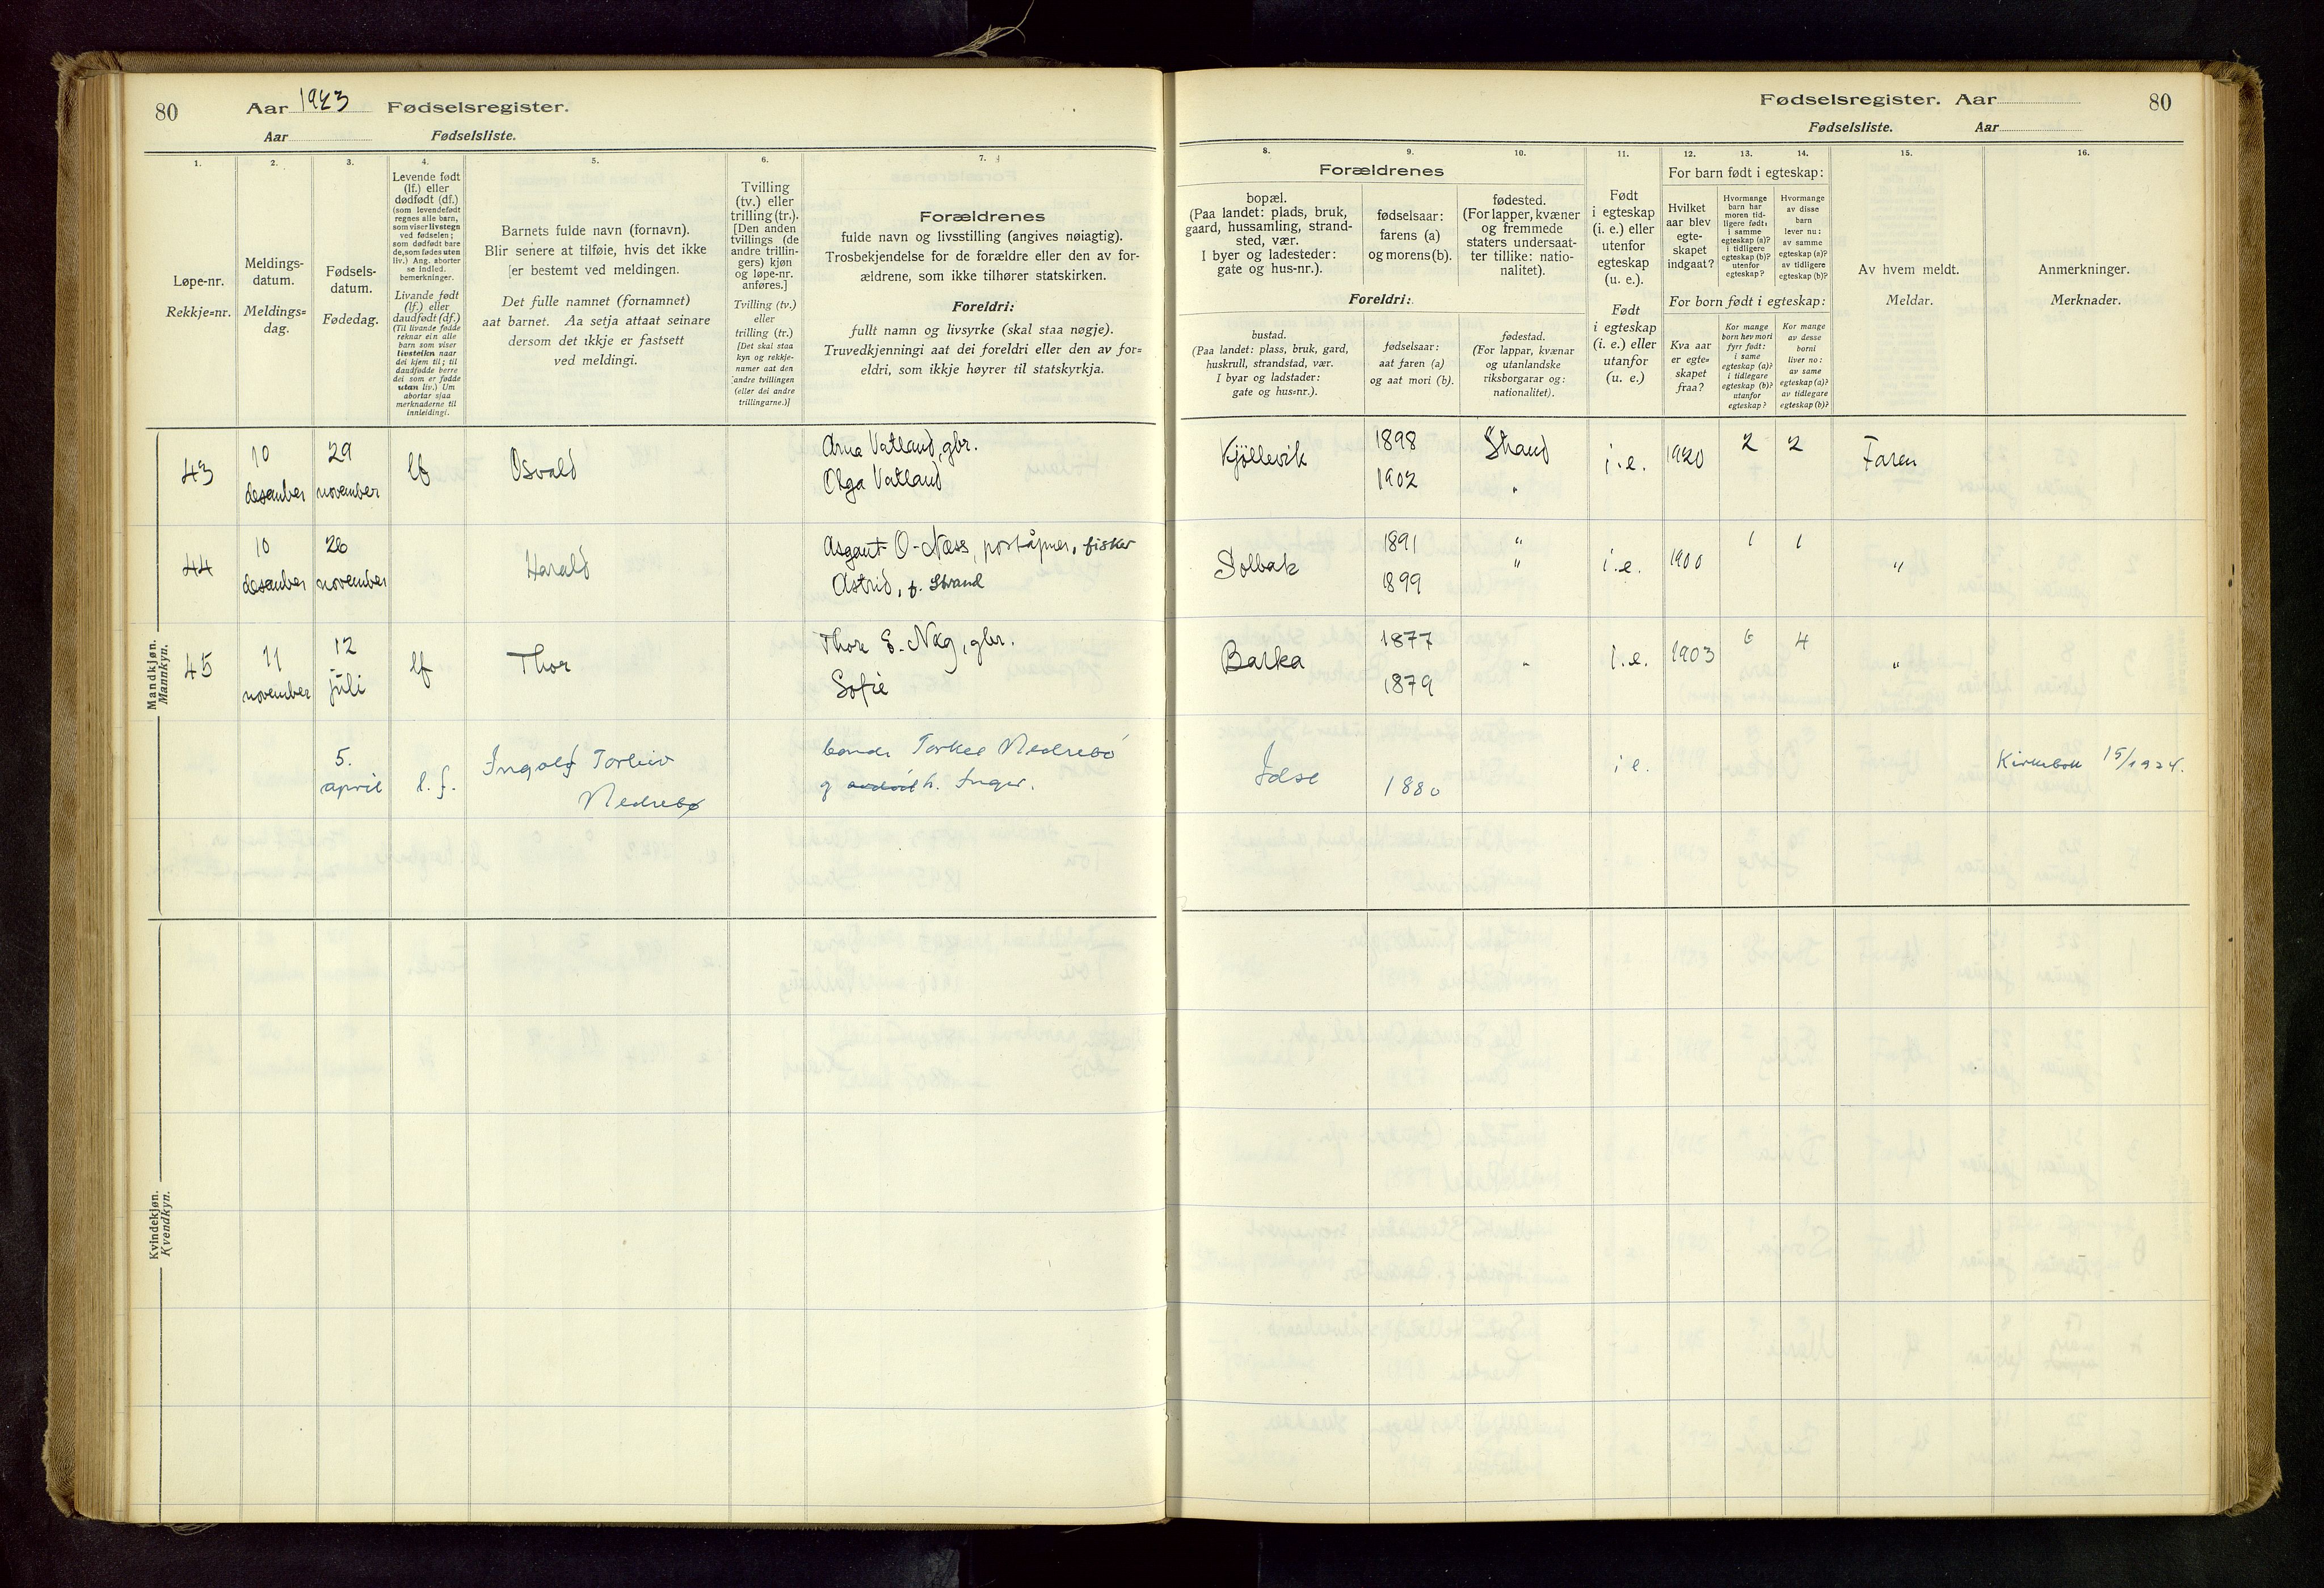 80 Aar 1923 Fødselsregister.
Aar Fødselsliste.
Fødselsregister. Aar 80
Fødselsliste. Aar
1. 2. 3. 4. 5. 6. 7.
Løpe-nr.
Rekkje=nr.
Meldings-
datum.
Meldings=
dag.
Fødsels-
datum.
Fødedag.
Levende født
(lf.) eller
dødfødt (df.)
(som levendefødt
regnes alle barn,
som viser livstegn
ved fødselen;
som dødfødt bare
de, som fødes uten
liv.) Ang. aborter
se indled.
bemerkninger.
Livande født
(lf.) eller
daudfødt (df.)
(Til livande fødde
reknar ein alle
barn som viser
livsteikn naar
dei kjem til; til
daudfødde berre
dei som er fødde
utan liv.) Um
abortar sjaa
merknaderne til
innleidingi.
Barnets fulde navn (fornavn).
Blir senere at tilføie, hvis det ikke
er bestemt ved meldingen.
Det fulle namnet (fornamnet)
aat barnet. Aa setja attaat seinare
dersom det ikkje er fastsett
ved meldingi.
Tvilling
(tv.) eller
trilling (tr.).
[Den anden
tvillings (de
andre trillin-
gers) kjøn
og løpe-nr.
anføres.]
Tvilling (tv.)
eller
trilling (tr.)
[Det skal staa
kyn og rekkje-
numer aat den
andre tvillingen
(eller dei andre
trillingarne.)]
Forældrenes
fulde navn og livsstilling (angives nøiagtig).
Trosbekjendelse for de forældre eller den av for-
ældrene, som ikke tilhører statskirken.
Foreldri:
fullt namn og livsyrke (skal staa nøgje).
Truvedkjenningi aat dei foreldri eller den av for=
eldri, som ikkje høyrer til statskyrkja.
8. 9. 10. 11. 12. 13. 14. 15. 16.
Forældrenes
bopæl.
(Paa landet: plads, bruk,
gaard, hussamling, strand-
sted, vær.
I byer og ladesteder:
gate og hus-nr.).
fødselsaar:
farens (a)
og morens (b).
fødested.
(For lapper, kvæner
og fremmede
staters undersaat-
ter tillike: natio-
nalitet).
Foreldri:
bustad.
(Paa landet: plass, bruk, gard,
huskrull, strandstad, vær.
I byar og ladstader:
gate og hus=nr.).
fødselsaar:
aat faren (a)
og aat mori (b).
fødestad.
(For lappar, kvænar
og utanlandske
riksborgarar og:
nationalitet).
Født
i egteskap
(i. e.) eller
utenfor
egteskap
(u. e.).
Født
i egteskap
(i. e.) eller
utanfor
(u. e.)
For barn født i egteskap:
Hvilket
aar blev
egte-
skapet
indgaat?
Hvormange
barn har
moren tid-
ligere født:
i samme
egteskap (a)?
i tidligere
egteskap (b)?
utenfor
egteskap?
Hvormange
av disse
barn
lever nu:
av samme
egteskap (a)?
av tidligere
egteskap (b)?
For born født i egteskap:
Kva aar
er egte=
skapet
fraa?
Kor mange
born hev mori
fyrr født:
i same
egteskap (a)?
i tidlegare
egteskap (b)?
utanfor
egteskap?
Kor mange
av desse
borni
liver no:
av same
egteskap (a)?
av tidlegare
egteskap (b)?
Av hvem meldt.
Meldar.
Anmerkninger.
Merknader.
Mandkjøn.
Mannkyn.
43 10 desember 29 november lf Osvald Arne Vatland, gbr. Kjöllevik 1898 Strand i.e. 1920 2 2 Faren
Olga Vatland 1902 "
44 10 desember 26 november Harald Asgaut O. Næss, poståpner, fisker Solbak 1891 " i.e. 1900 1 1 "
Astrid, f. Strand 1899 "
45 11 november 12 juli lf Thor Thore E. Nag, gbr. Barka 1877 " i.e. 1903 6 4 "
Sofie 1879
5. april l.f. Ingolf Torleiv Nedrebø bonde Torkel Nedrebö Idse i e. Kirkebok 15/1924.
g h. Inger. 1880
Kvindekjøn.
Kvendkyn.